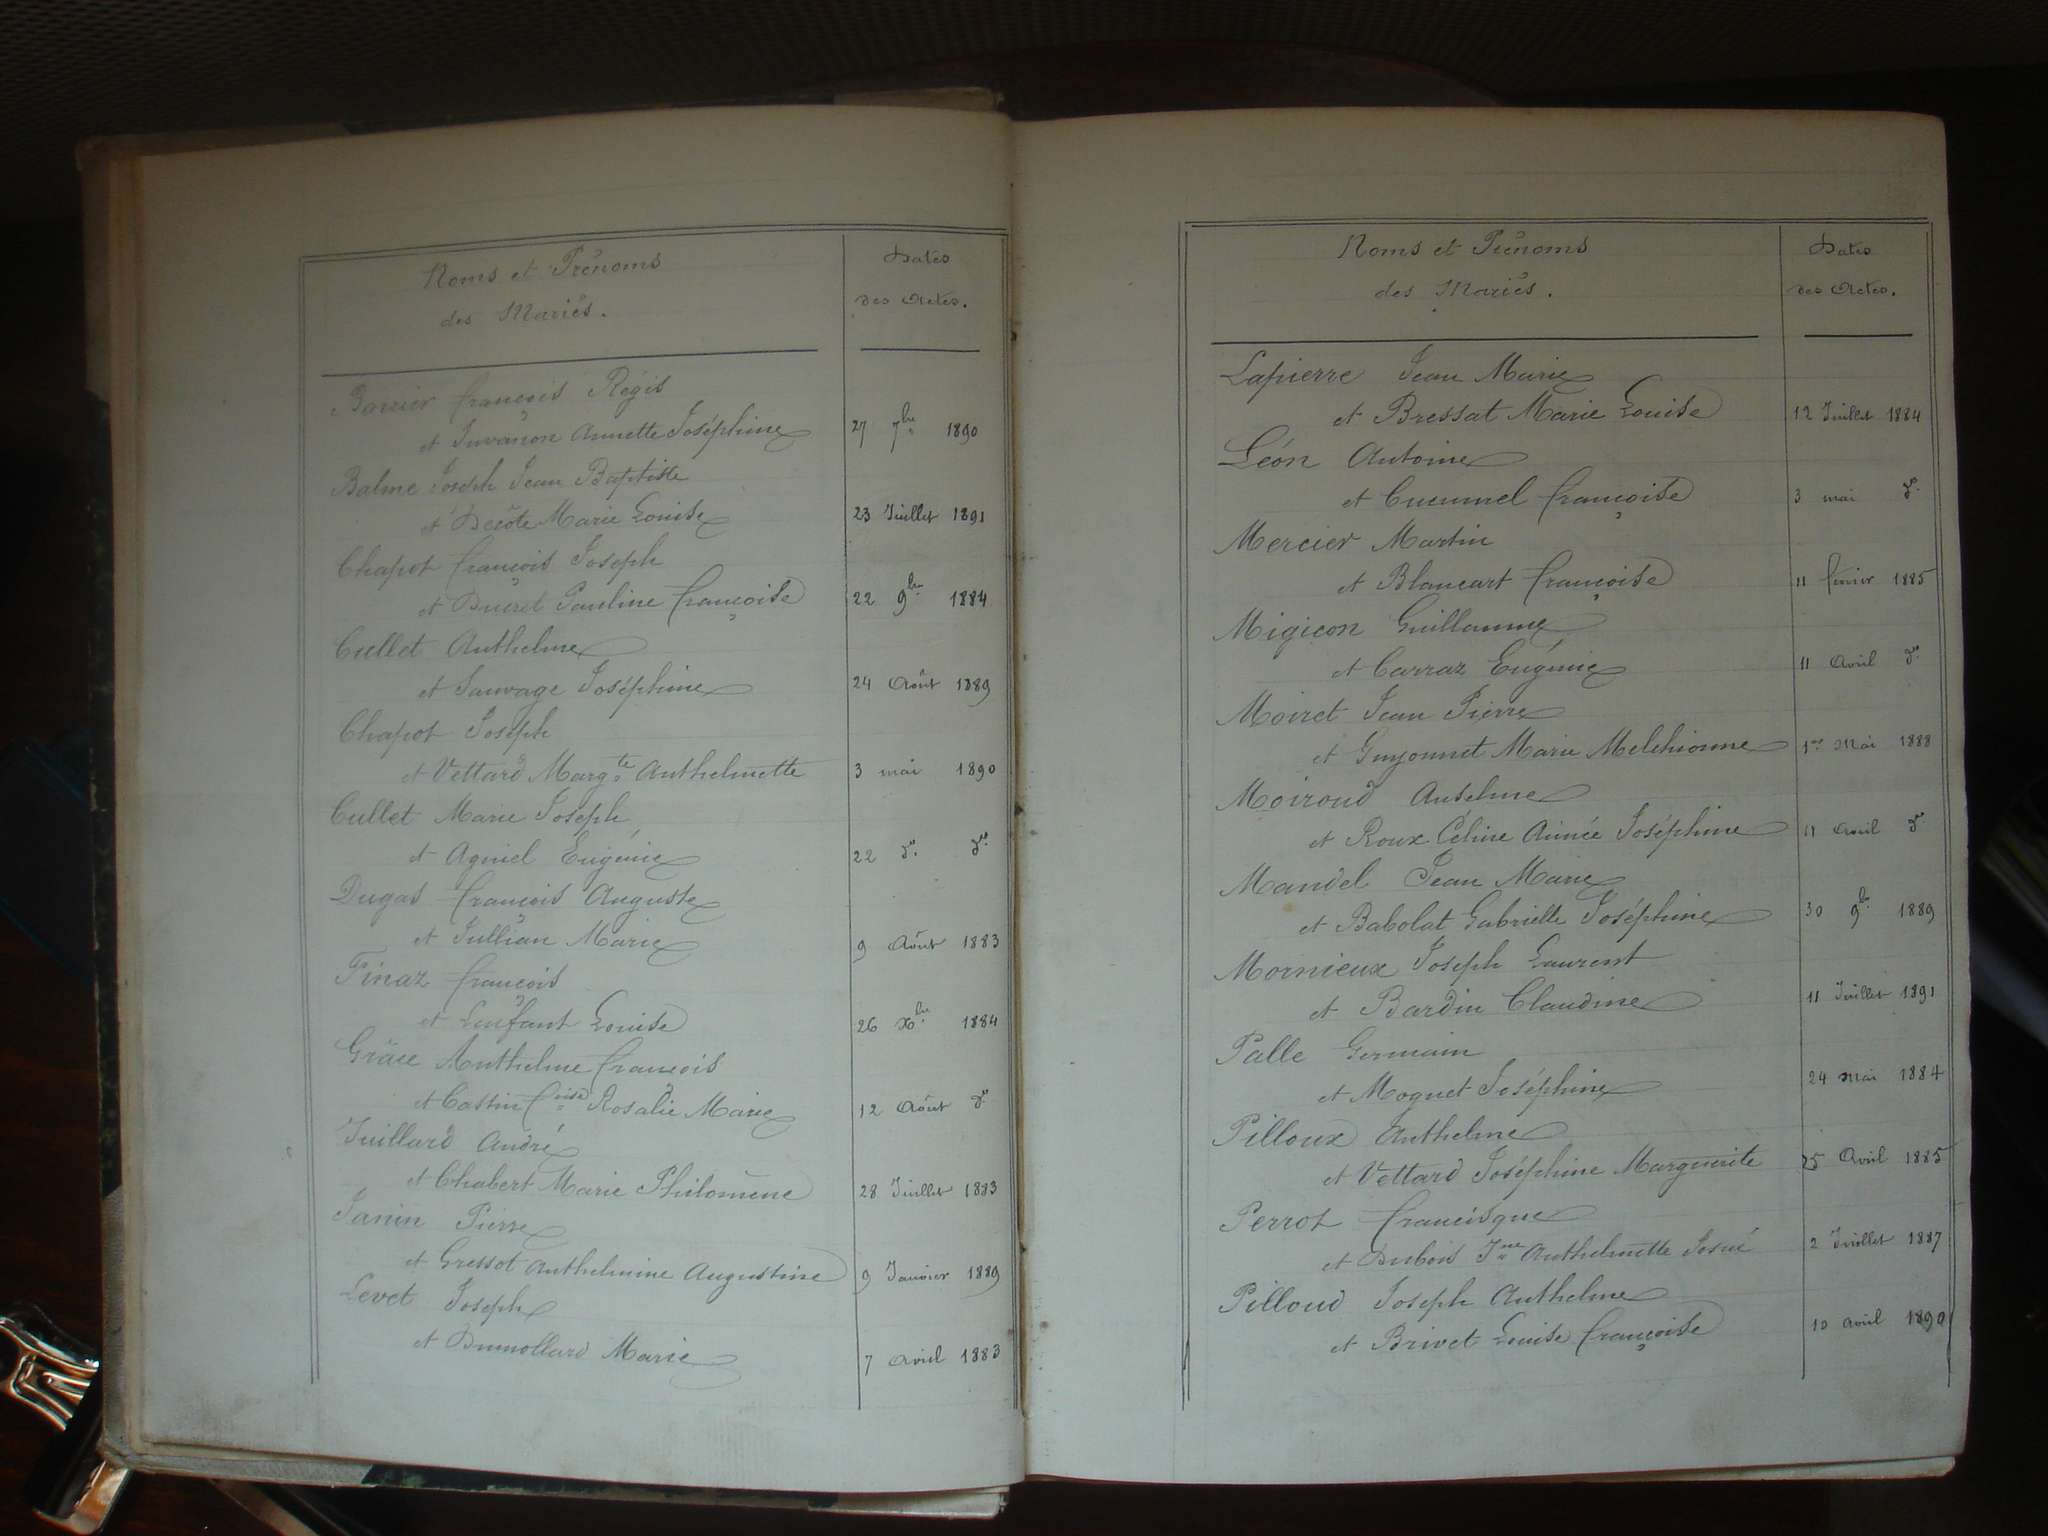 Noms et Prénoms
des Mariés.
Dates
des Actes.
Barrier François Régis
et Juvanon Annette Joséphine 27 7bre 1890
Balme Joseph Jean Baptiste
et Décôte Marie Louise 23 Juillet 1891
Chapot François Joseph
et Buret Pauline Françoise 22 9bre 1884
Cullet Anthelme
et Sauvage Joséphine 24 Août 1889
Chapot Joseph
et Vettard Margte Anthelmette 3 mai 1890
Cullet Marie Joseph
et Agniel Eugénie 22 do. do.
Dugas François Auguste
et Jullian Marie 9 Août 1883
Finaz François
et Lenfant Louise 26 Xbre 1884
Grâce Anthelme François
et Castin Fçoise Rosalie Marie 12 Août do
Juillard André
et Chabert Marie Philomène 28 Juillet 1883
Janin Pierre
et Gressot Anthelmine Augustine 9 Janvier 1889
Levet Joseph
et Dumollard Marie 7 Avril 1883
Noms et Prénoms
des Mariés.
Dates
des Actes.
Lapierre Jean Marie
et Bressat Marie Louise 12 Juillet 1884
Léon Antoine
et Françoise 3 mai do.
Mercier Martin
et Blancart Françoise 11 février 1885
Migieon Guillaume
et Carraz Eugénie 11 Avril do.
Moiret Jean Pierre
et Guyonnet Marie Melchionne 1er Mai 1888
Moiroud Anselme
et Roux Céline Aimée Joséphine 11 Avril do
Mandel Jean Marie
et Babolat Gabrielle Joséphine 30 9bre 1889
Moinieux Joseph Laurent
et Bardin Claudine 11 Juillet 1891
Palle Germain
et Moguet Joséphine 24 Mai 1884
Pilloux Anthelme
et Vettard Joséphine Marguerite 25 Avril 1885
Perrot Francisque
et Dubois Jne Anthelmette Josué 2 Juillet 1887
Pilloud Joseph Anthelme
et Brivet Louise Françoise 10 avril 1890